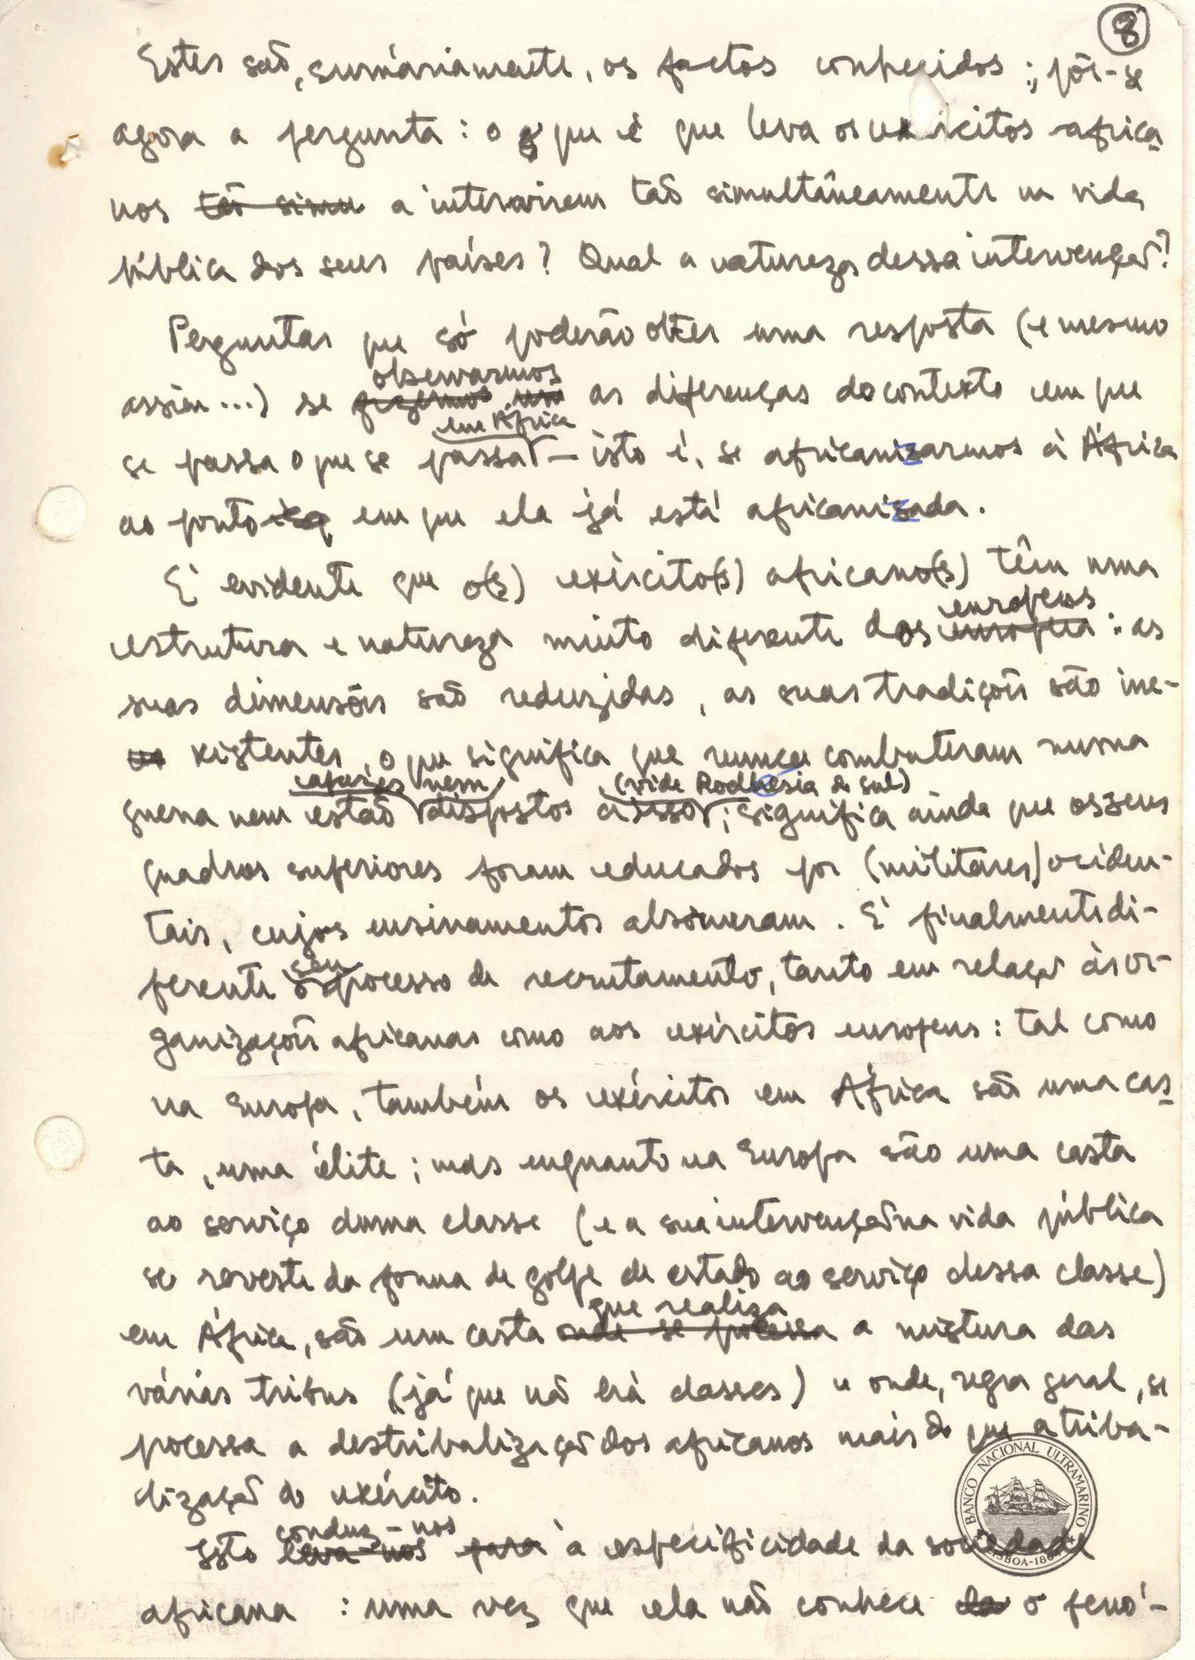 8
Estes são, sumáriamente, os factos conhecidos ; põe-se
agora a pergunta : o que é que leva os exércitos africa
nos tão simu a intervirem tão simultâneamente na vida
pública dos seus países? Qual a natureza dessa intervenção?
Perguntas que só poderão obter uma resposta (e mesmo
observarmos
assim...) se fizermos um as diferenças do contexto em que
em África
se passa o que se passa — isto é, se africanizarmos a África
ao ponto em que ela já está africanizada.
É evidente que o(s) exército(s) africano(s) têm uma
europeus
estrutura e natureza muito diferente dos europeu : as
suas dimensões são reduzidas, as suas tradições são ine-
xistentes, o que significa que nunca combateram numa
capazes nem (vide Rodhésia do sul)
guerra nem estão dispostos a isso ; significa ainda que os seus
quadros superiores foram educados por (militares) ociden-
tais, cujos ensinamentos absorveram. É finalmente di-
seu
ferente o processo de recrutamento, tanto em relação às or-
ganizações africanas como aos exércitos europeus : tal como
na Europa, também os exércitos em África são uma cas
ta, uma élite ; mas enquanto na Europa são uma casta
ao serviço duma classe (e a sua intervenção na vida pública
se reveste da forma de golpe de estado ao serviço dessa classe)
que realiza
em África, são um casta onde se processa a mistura das
várias tribus (já que não há classes) e onde, regra geral, se
processa a destribalização dos africanos mais do que a triba-
lização do exército.
conduz-nos
Isto leva-nos para à especificidade da sociedade
africana : uma vez que ela não conhece o fenó-
BANCO NACIONAL ULTRAMARINO
LISBOA-1864